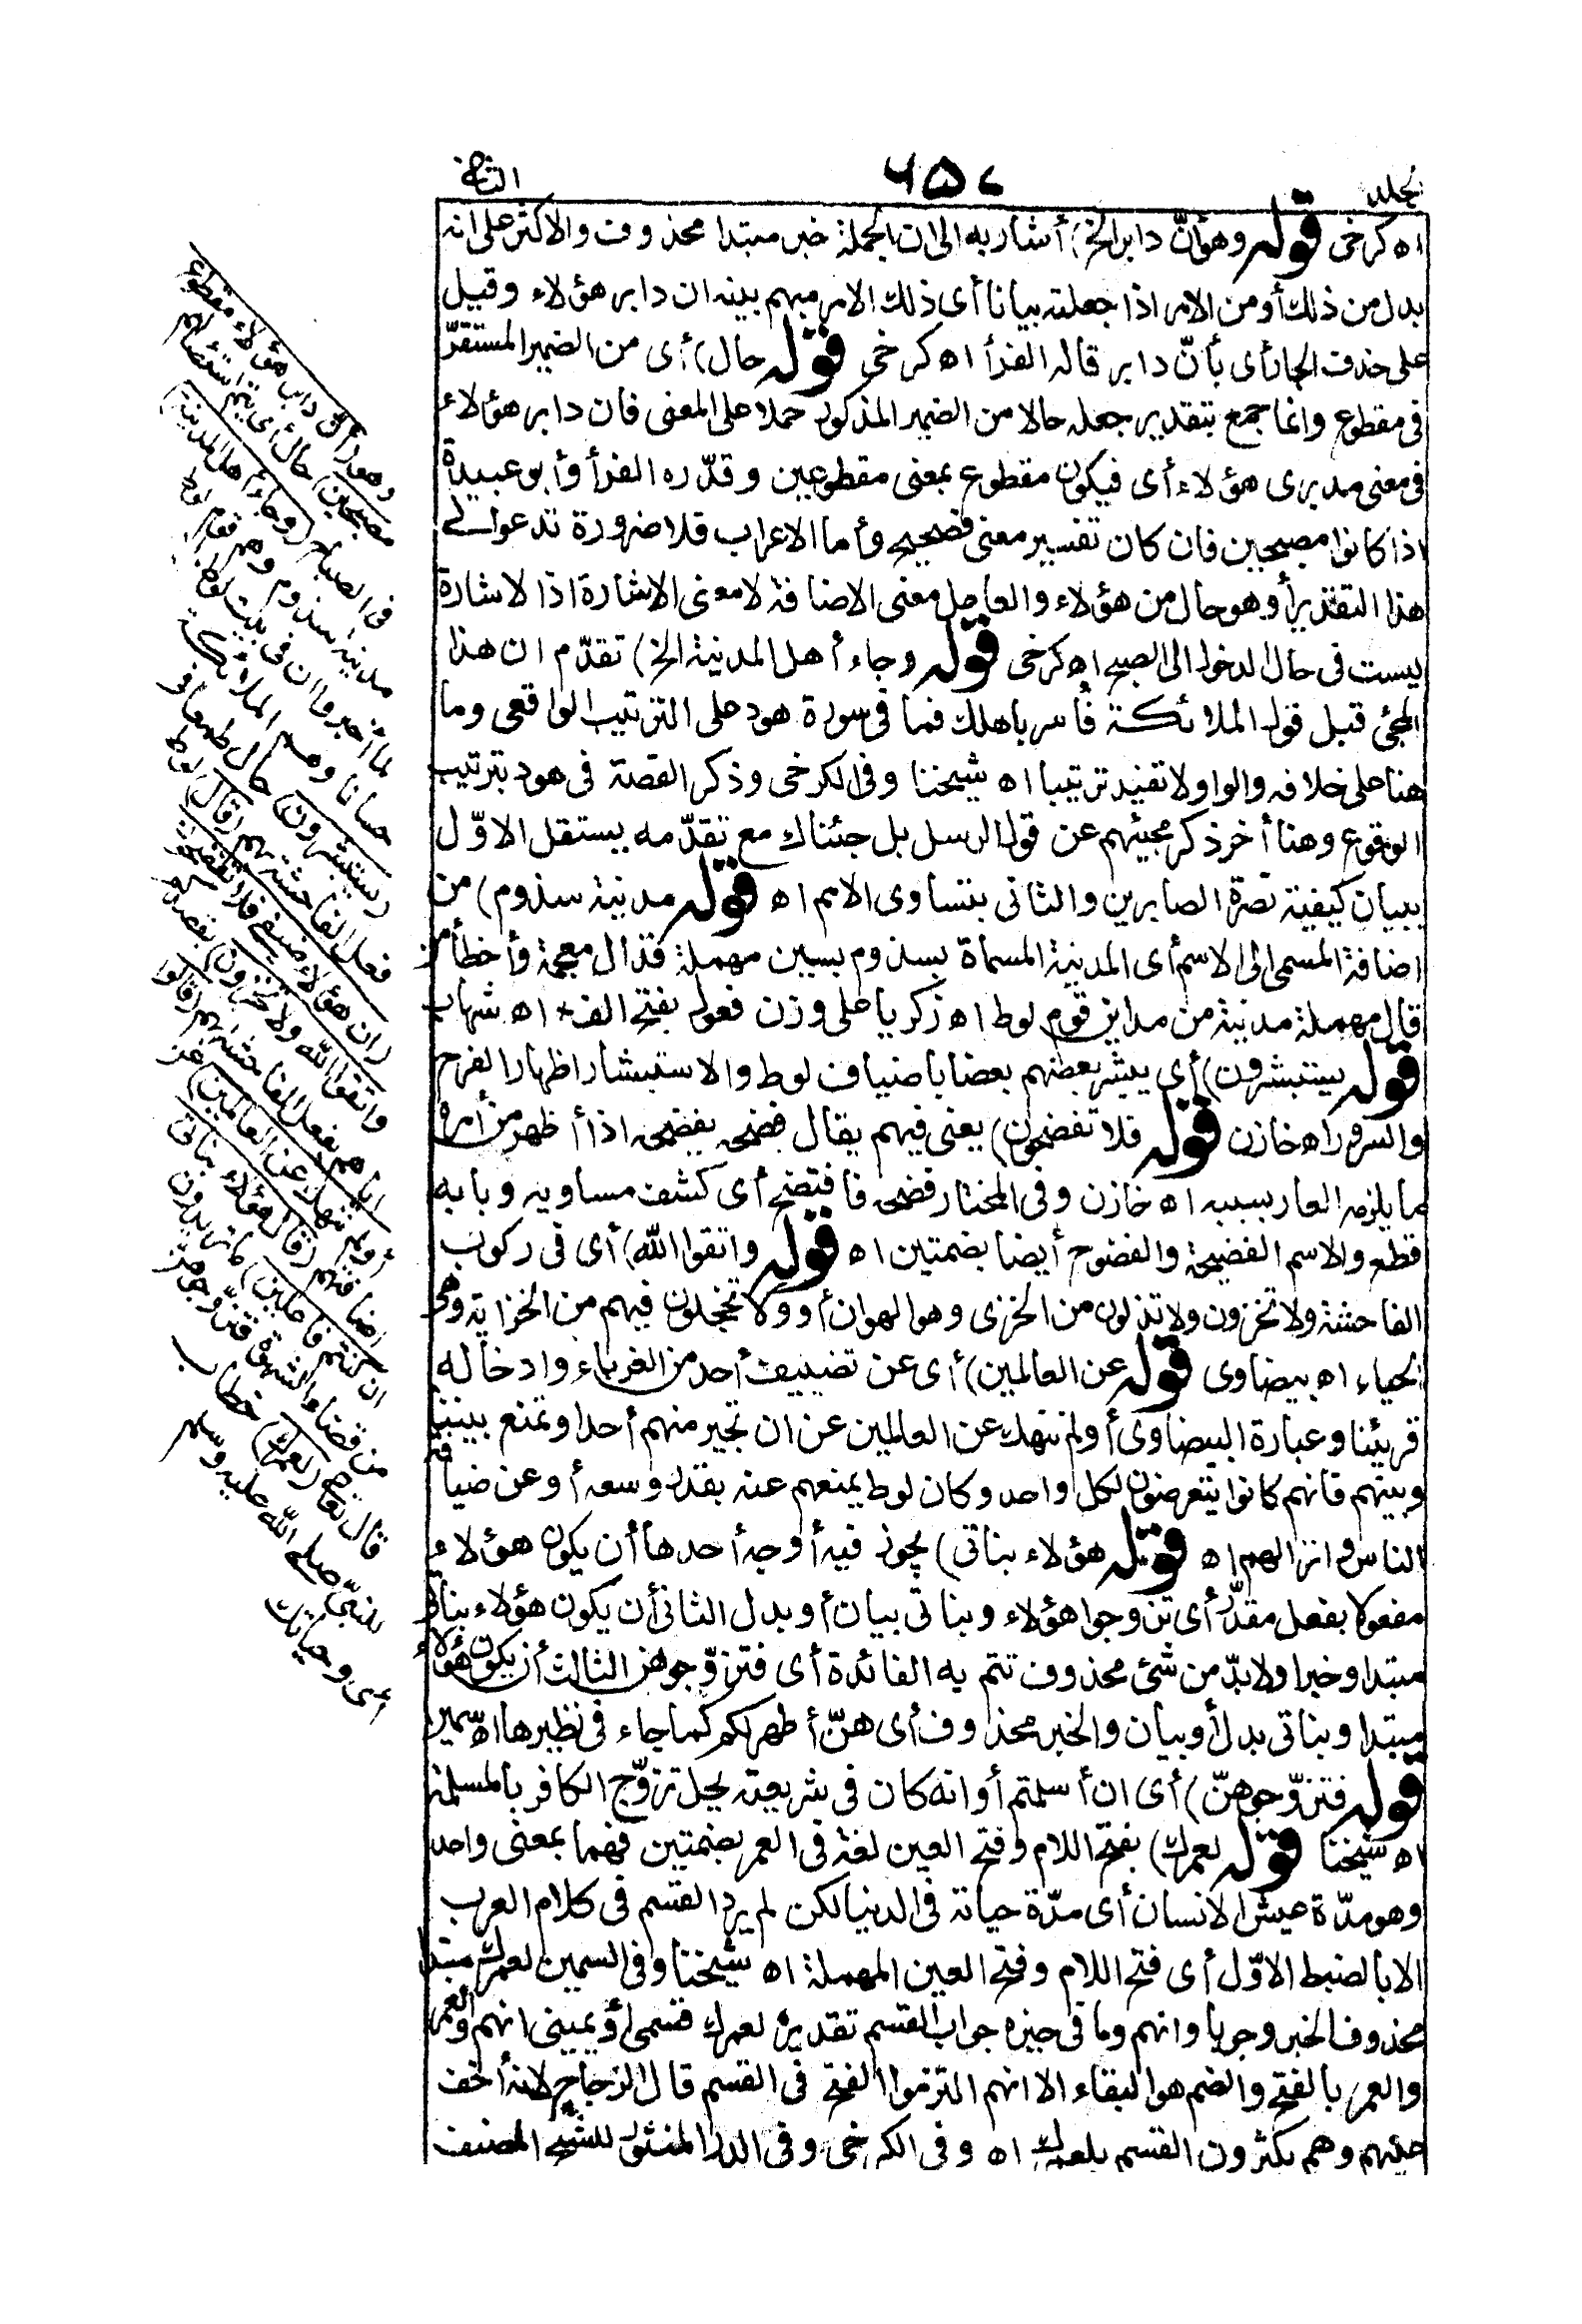 مجلد ٦٥٧ الثانى
اه كرخى قوله وهو أنّ دابر الخ) أشار به الى ان الجملة خبر مبتدا محذوف والاكثر على انه
بدل من ذلك أو من الامر اذا جعلته بيانا أى ذلك الامر مبهم بينه ان دابر هؤلاء وقيل
على حذف الجار أى بأنّ دابر قاله الفرأ اه كرخى قوله حال) أى من الضمير المستقرّ
فى مقطوع وانما جمع بتقدير جعله حالا من الضمير المذكور حملا على المعنى فان دابر هؤلاء
فى معنى مدبرى هؤلاء أى فيكون مقطوع بمعنى مقطوعين وقدّره الفرأ وأبو عبيدة
اذا كانوا مصبحين فان كان تفسير معنى فصحيح وأما الاعراب فلا ضرورة تدعو الى
هذا التقدير أو هو حال من هؤلاء والعامل معنى الاضافة لا معنى الاشارة اذ الاشارة
ليست فى حال الدخول الى الصبح اه كرخى قوله وجاء أهل المدينة الخ) تقدّم ان هذا
المجئ قبل قول الملائكة فأسر باهلك فما فى سورة هود على الترتيب الواقعى وما
هنا على خلافه والواو لا تفيد ترتيبا اه شيخنا وفى الكرخى وذكر القصة فى هود بترتيب
الوقوع وهنا أخر ذكر مجيئهم عن قول الرسل بل جئناك مع تقدّمه ليستقل الاوّل
ببيان كيفية نصرة الصابرين والثانى بتساوى الامم اه قوله مدينة سذوم) من
اضافة المسمى الى الاسم أى المدينة المسماة بسذوم بسين مهملة فذال معجمة وأخطأ من
قال مهملة مدينة من مداين قوم لوط اه زكريا على وزن فعول بفتح الفاء اه شهاب
قوله يستبشرون) أى يبشر بعضهم بعضا باضياف لوط والاستبشار اظهار الفرح
والسرور اه خازن قوله فلا تفضحون) يعنى فيهم يقال فضحه يفضحه اذا أظهر من أمره
ما يلزمه العار بسببه اه خازن وفى المختار فضحه فافتضح أى كشف مساويه وبابه
قطع والاسم الفضيحة والفضوح أيضا بضمتين اه قوله واتقوا الله) أى فى ركوب
الفاحشة ولا تخزون ولا تذلون من الخزى وهو الهوان أو ولا تخجلون فيهم من الخزاية وهى
الحياء اه بيضاوى قوله عن العالمين) أى عن تضييف أحد من الغرباء وادخاله
قريتنا وعبارة البيضاوى أولم ننهك عن العالمين عن ان تجير منهم أحدا وتمنع بيننا
وبينهم فانهم كانوا يتعرضون لكل واحد وكان لوط يمنعهم عنه بقدر وسعه أو عن ضيافة
الناس وانزالهم اه قوله هؤلاء بناتى) يجوز فيه أوجه أحدها أن يكون هؤلاء
مفعولا بفعل مقدّر أى تزوجوا هؤلاء وبناتى بيان أو بدل الثانى أن يكون هؤلاء بناتى
مبتدا وخبرا ولا بدّ من شئ محذوف تتم به الفائدة أى فتزوّجوهن الثالث أن يكون هؤلاء
مبتدا وبناتى بدل أو بيان والخبر محذوف أى هنّ أطهر لكم كما جاء فى نظيرها اه سمين
قوله فتزوّجوهنّ) أى ان أسلمتم أو انه كان فى شريعته يحل تزوّج الكافر بالمسلمة
اه شيخنا قوله لعمرك) بفتح اللام وفتح العين لغة فى العمر بضمتين فهما بمعنى واحد
وهو مدّة عيش الانسان أى مدّة حياته فى الدنيا لكن لم يرد القسم فى كلام العرب
الا بالضبط الاوّل أى فتح اللام وفتح العين المهملة اه شيخنا وفى السمين لعمرك مبتدا
محذوف الخبر وجوبا وانهم وما فى حيزه جواب القسم تقديره لعمرك قسمى أو يمينى انهم والعمر
والعمر بالفتح والضم هو البقاء الا انهم التزموا الفتح فى القسم قال الزجاج لانه أخف
عليهم وهم يكثرون القسم بلعمرك اه وفى الكرخى وفى الدر المنثور للشيخ المصنف
وهو (أن دابر هؤلاء مقطوع
مصبحين) حال أى يتم استئصالهم
فى الصباح (وجاء أهل المدينة)
مدينة سذوم وهم قوم لوط
لما أخبروا ان فى بيت لوط مردا
حسانا وهم الملائكة
(يستبشرون) حال طمعا فى
فعل الفاحشة بهم (قال) لوط
(ان هؤلاء ضيفى فلا تفضحون
واتقوا الله ولا تخزون) بقصدكم
اياهم بفعل الفاحشة بهم (قالوا
أولم ننهك عن العالمين) عن
اضافتهم (قال هؤلاء بناتى
ان كنتم فاعلين) ما تريدون
من قضاء الشهوة فتزوجوهنّ
قال تعالى (لعمرك) خطاب
للنبىّ صلى الله عليه وسلم
أى وحياتك